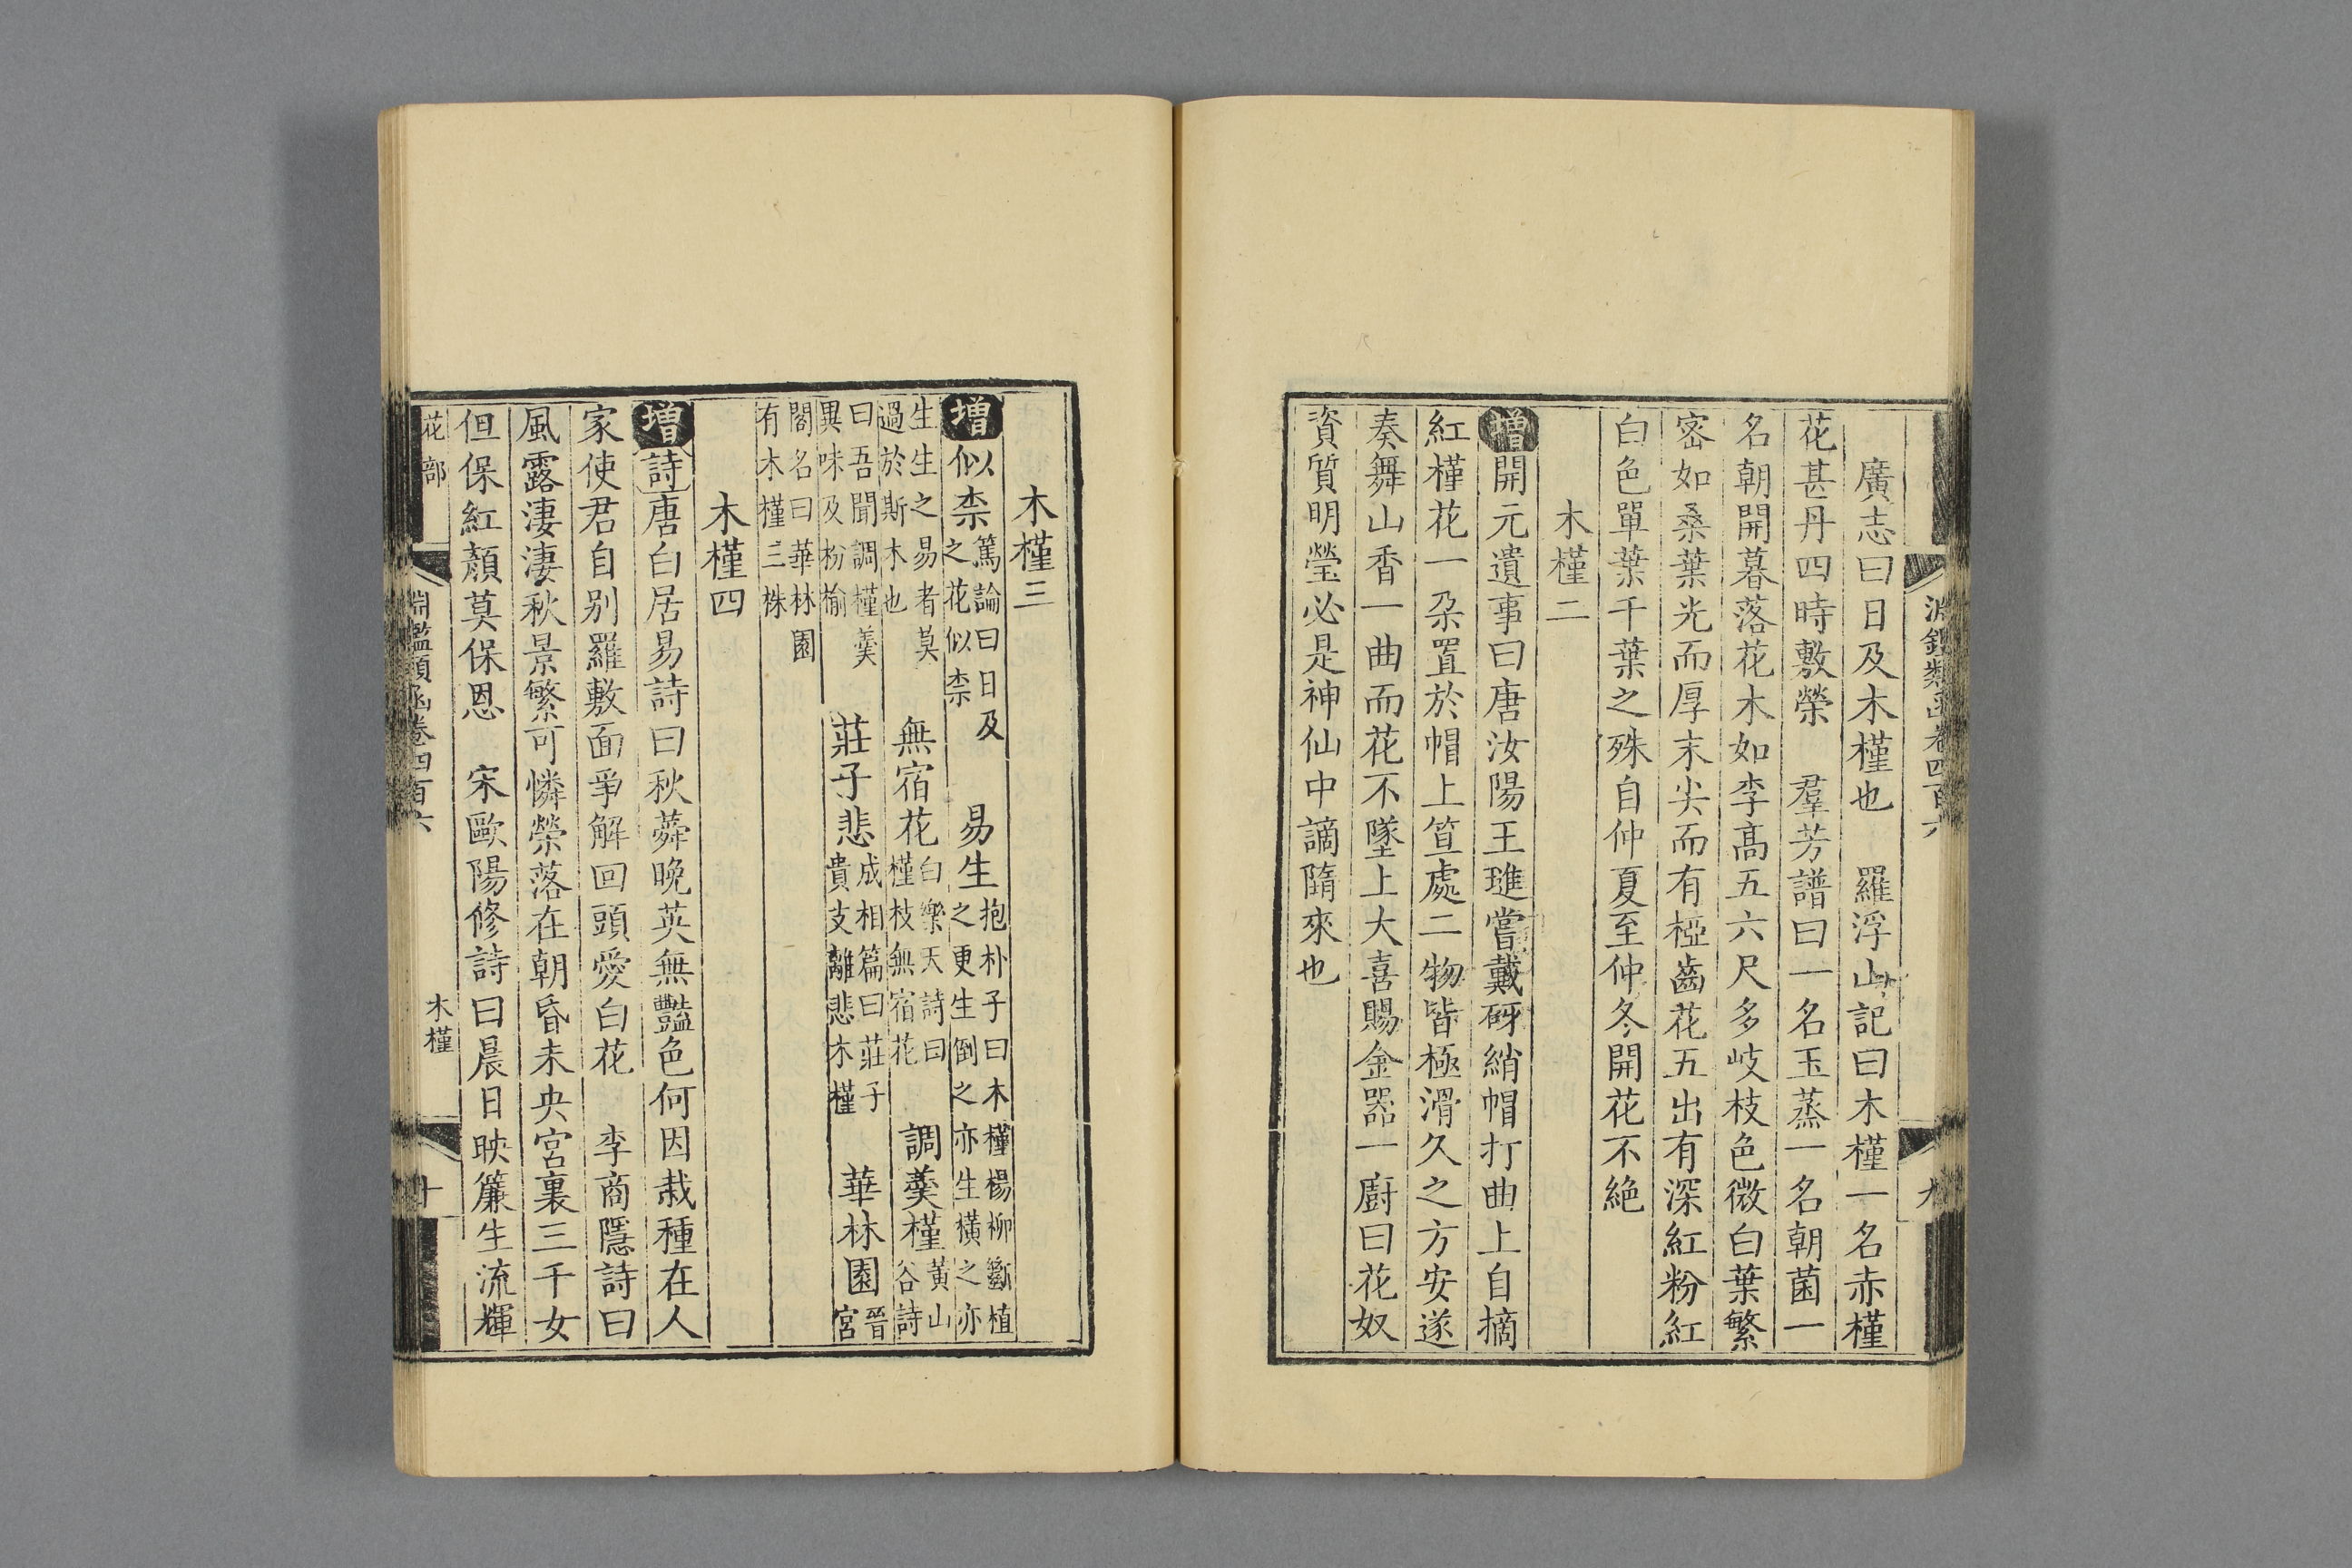 淵鑑類函卷四百六
九
廣志曰日及木槿也　羅浮山記曰木槿一名赤槿
花甚丹四時敷榮　羣芳譜曰一名玉蒸一名朝菌一
名朝開暮落花木如李高五六尺多岐枝色微白葉繁
密如桑葉光而厚末尖而有椏齒花五出有深紅粉紅
白色單葉千葉之殊自仲夏至仲冬開花不絶
木槿二
增開元遺事曰唐汝陽王璡嘗戴砑綃帽打曲上自摘
紅槿花一朶置於帽上笪處二物皆極滑久之方安遂
奏舞山香一曲而花不墜上大喜賜金器一廚曰花奴
資質明瑩必是神仙中謫隨來也
木槿三
增似柰篤論曰日及之花似柰　易生抱朴子曰木槿楊柳斷植之更生倒之亦生橫之亦
生生之易者莫過於斯木也　無宿花白樂天詩曰槿枝無宿花　調羹槿黃山谷詩
曰吾聞調槿羹異味及枌榆　莊子悲成相篇曰莊子貴支離悲木槿　華林園晉宮
閣名曰華林園有木槿三株
木槿四
增詩唐白居易詩曰秋蕣晚英無艷色何因栽種在人
家使君自别羅敷面爭解回頭愛白花　李商隱詩曰
風露淒淒秋景繁可憐榮落在朝昏未央宮裏三千女
但保紅顏莫保恩　宋歐陽修詩曰晨日映簾生流輝
花部
淵鑑類函卷四百六
木槿
十